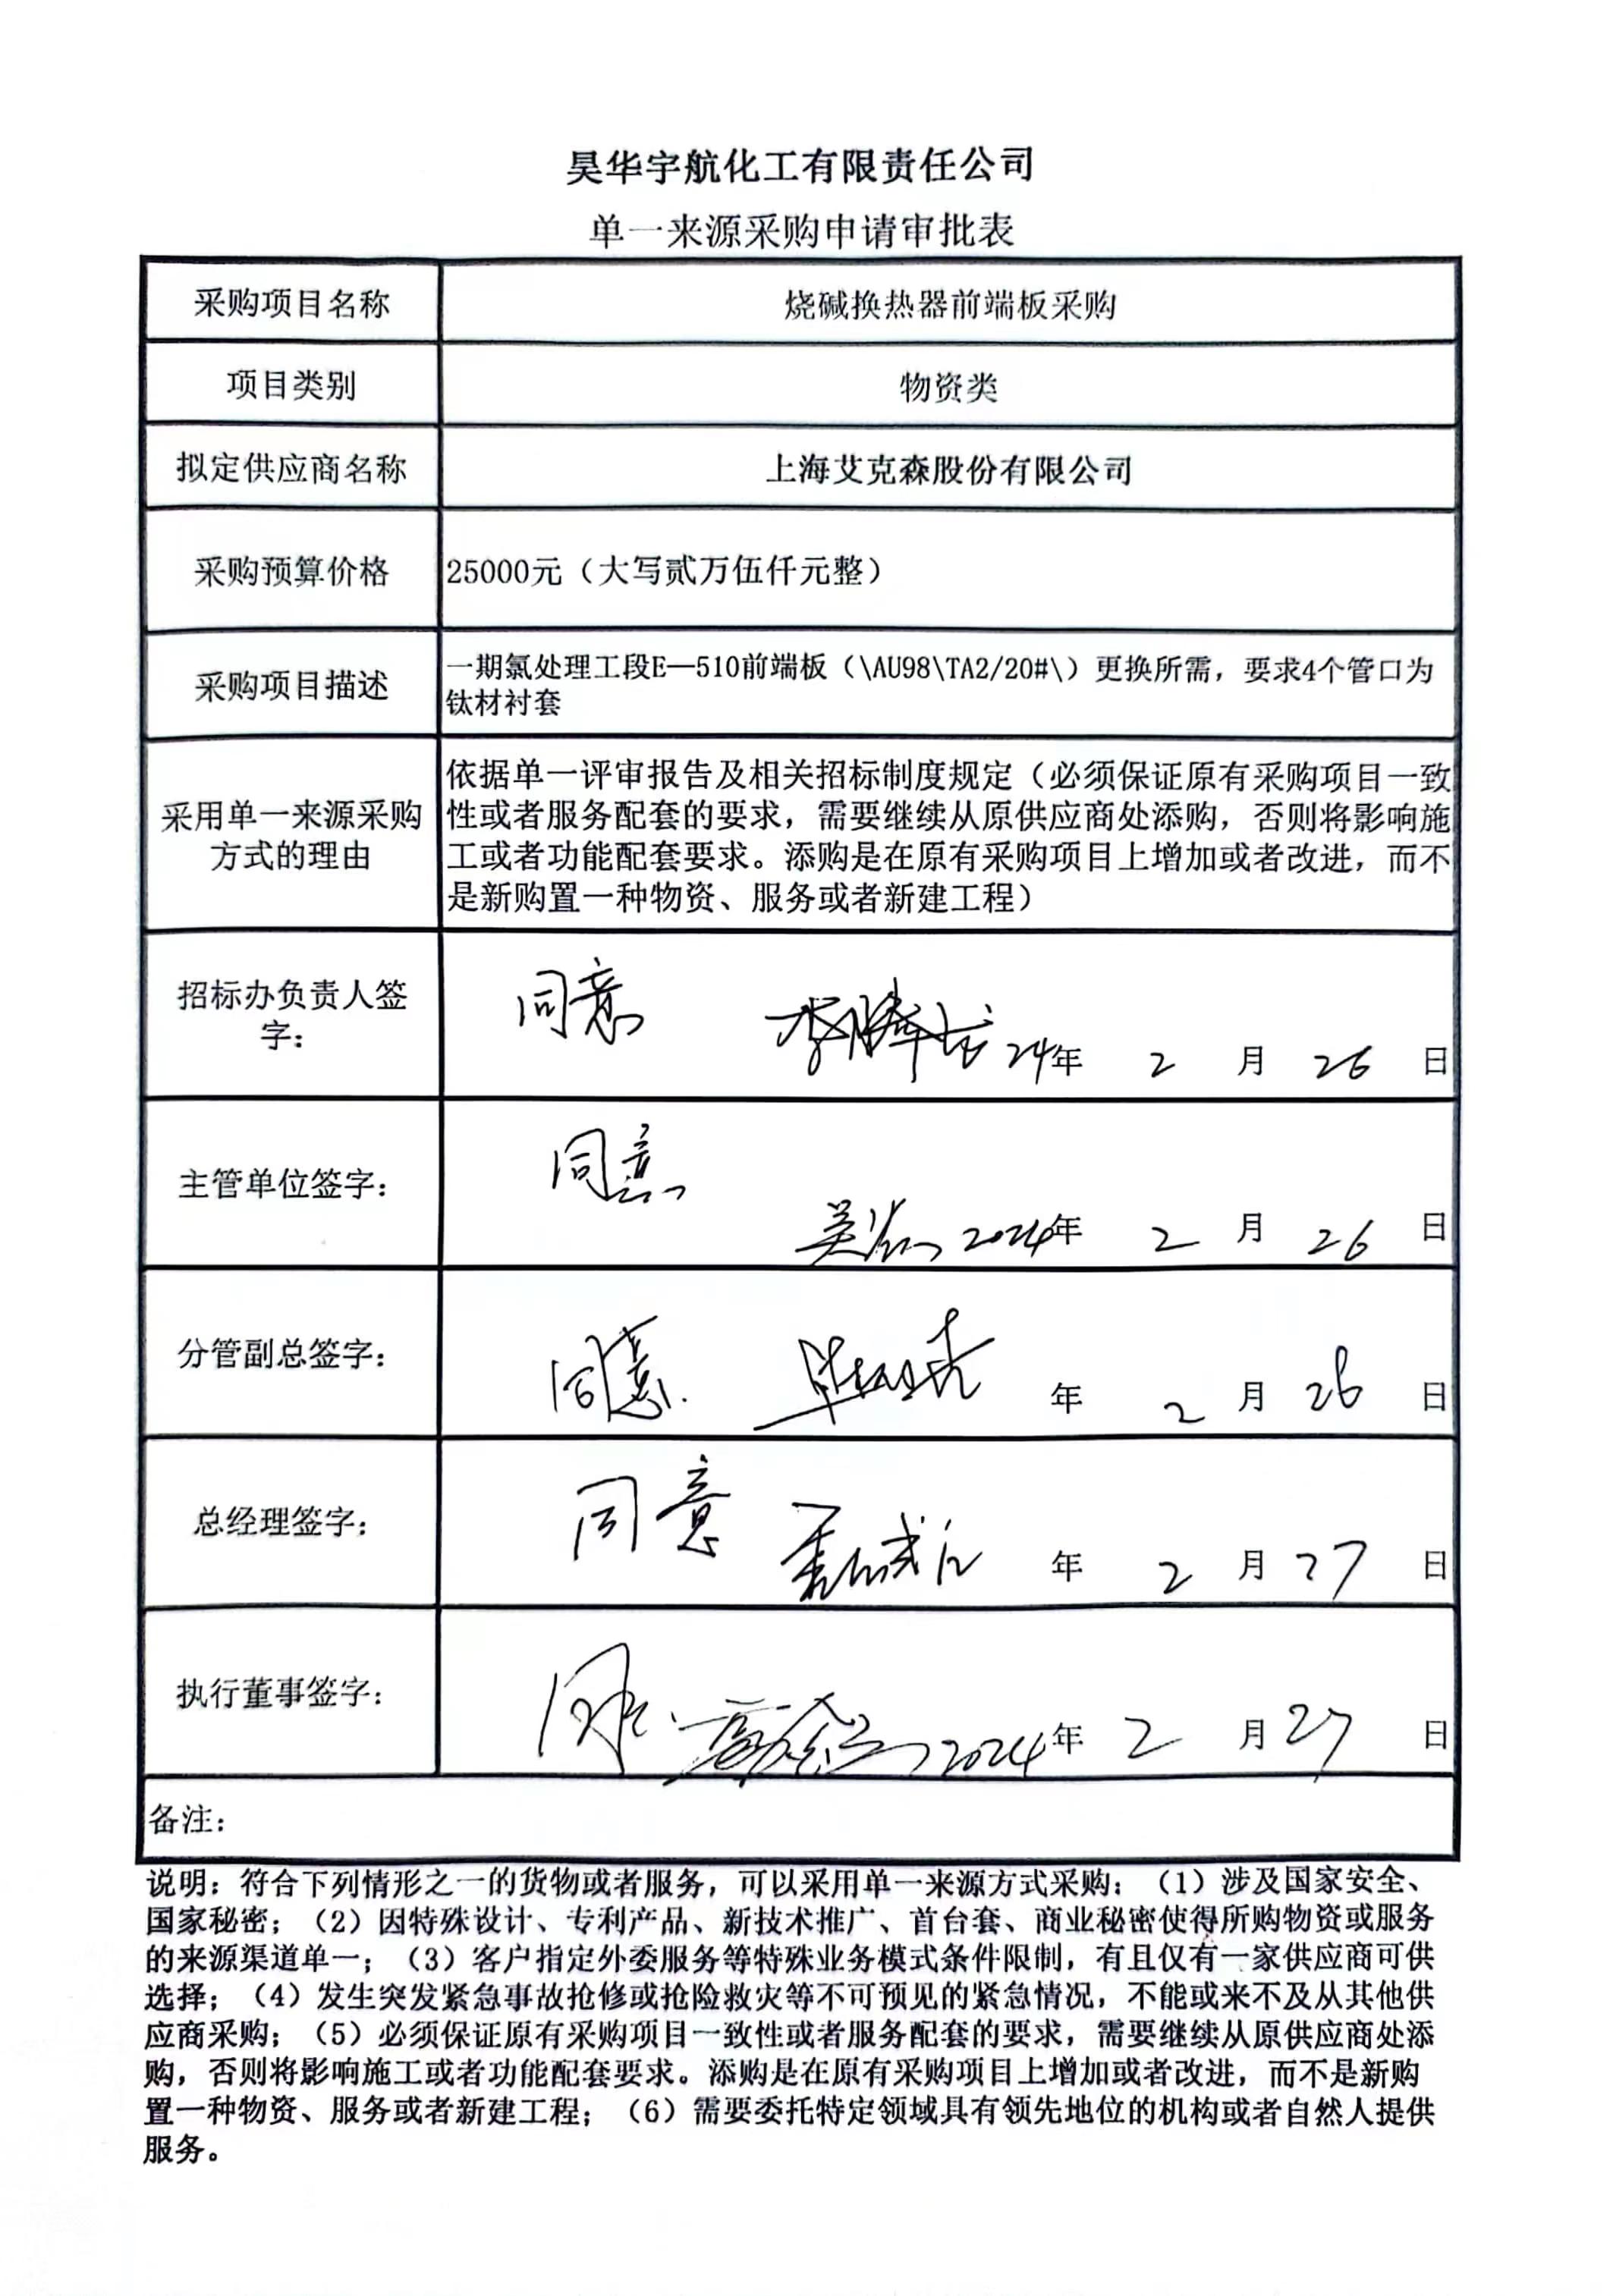 昊华宇航化工有限责任公司
单一来源采购申请审批表
采购项目名称
烧碱换热器前端板采购
项目类别
物资类
拟定供应商名称
上海艾克森股份有限公司
采购预算价格
25000元（大写贰万伍仟元整）
采购项目描述
一期氯处理工段E—510前端板（\AU98\TA2/20#\）更换所需，要求4个管口为
钛材衬套
采用单一来源采购
方式的理由
依据单一评审报告及相关招标制度规定（必须保证原有采购项目一致
性或者服务配套的要求，需要继续从原供应商处添购，否则将影响施
工或者功能配套要求。添购是在原有采购项目上增加或者改进，而不
是新购置一种物资、服务或者新建工程）
招标办负责人签
字：
同意
24年 2 月 26 日
主管单位签字：
同意
2024年 2 月 26 日
分管副总签字：
同意
年 2 月 26 日
总经理签字：
同意
年 2 月 27 日
执行董事签字：
2024年 2 月 27 日
备注：
说明：符合下列情形之一的货物或者服务，可以采用单一来源方式采购：（1）涉及国家安全、
国家秘密；（2）因特殊设计、专利产品、新技术推广、首台套、商业秘密使得所购物资或服务
的来源渠道单一；（3）客户指定外委服务等特殊业务模式条件限制，有且仅有一家供应商可供
选择；（4）发生突发紧急事故抢修或抢险救灾等不可预见的紧急情况，不能或来不及从其他供
应商采购；（5）必须保证原有采购项目一致性或者服务配套的要求，需要继续从原供应商处添
购，否则将影响施工或者功能配套要求。添购是在原有采购项目上增加或者改进，而不是新购
置一种物资、服务或者新建工程；（6）需要委托特定领域具有领先地位的机构或者自然人提供
服务。